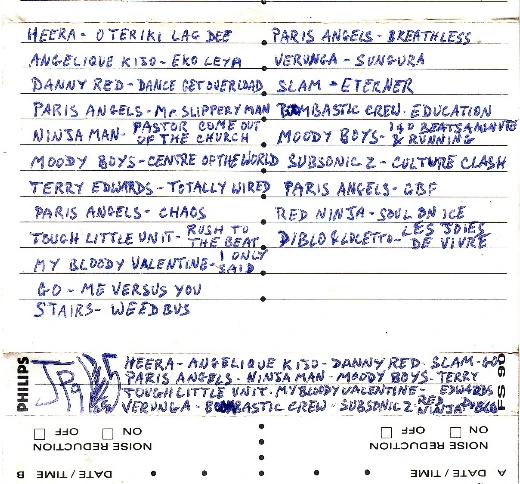 HEERA - OTERIKI LAG DEE
ANGELIQUE KIJO - EKO LEYA
DANNY RED - DANCE GET OVERLOAD
PARIS ANGELS - Mr SLIPPERY MAN
NINJA MAN - PASTOR COME OUT OF THE CHURCH
MOODY BOYS - CENTRE OF THE WORLD
TERRY EDWARDS - TOTALLY WIRED
PARIS ANGELS - CHAOS
TOUGH LITTLE UNIT - RUSH TO THE BEAT
MY BLOODY VALENTINE - I ONLY SAID
GO - ME VERSUS YOU
STAIRS - WEEDBUS
PARIS ANGELS - BREATHLESS
VERUNGA - SUNGURA
SLAM - ETERNER
BOMBASTIC CREW - EDUCATION
MOODY BOYS - 140 BEATS A MINUTE & RUNNING
SUBSONIC 2 - CULTURE CLASH
PARIS ANGELS - GBF
RED NINJA - SOUL ON ICE
DIBLO & LOCETTO - LES JOIES DE VIVRE
PHILIPS
JP 9 25
HEERA - ANGELIQUE KIJO - DANNY RED - SLAM - GO
PARIS ANGELS - NINJA MAN - MOODY BOYS - TERRY EDWARDS
TOUGH LITTLE UNIT - MY BLOODY VALENTINE -
VERUNGA - BOMBASTIC CREW - SUBSONIC 2 - RED NINJA - DIBLO
FS 90
NOISE REDUCTION
ON OFF
NOISE REDUCTION
ON OFF
A DATE / TIME
DATE / TIME B